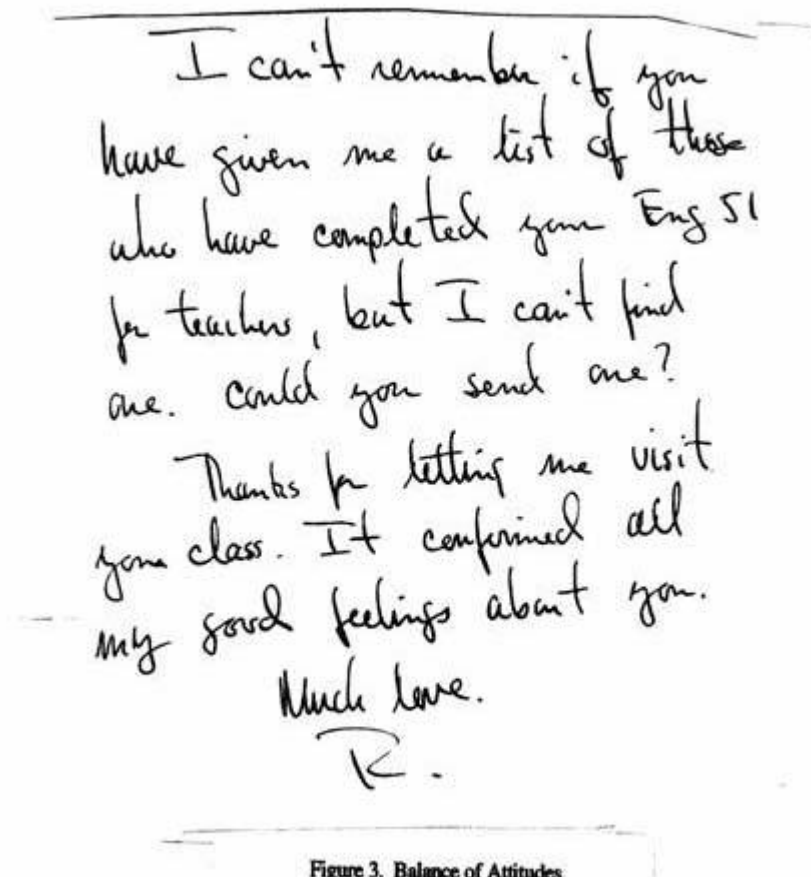 I can't remember if you
have given me a list of those
who have completed your Eng 51
for teachers, but I can't find
one. Could you send one?
Thanks for letting me visit
your class. It confirmed all
my good feelings about you.
Much love.
R.
Figure 3. Balance of Attitudes